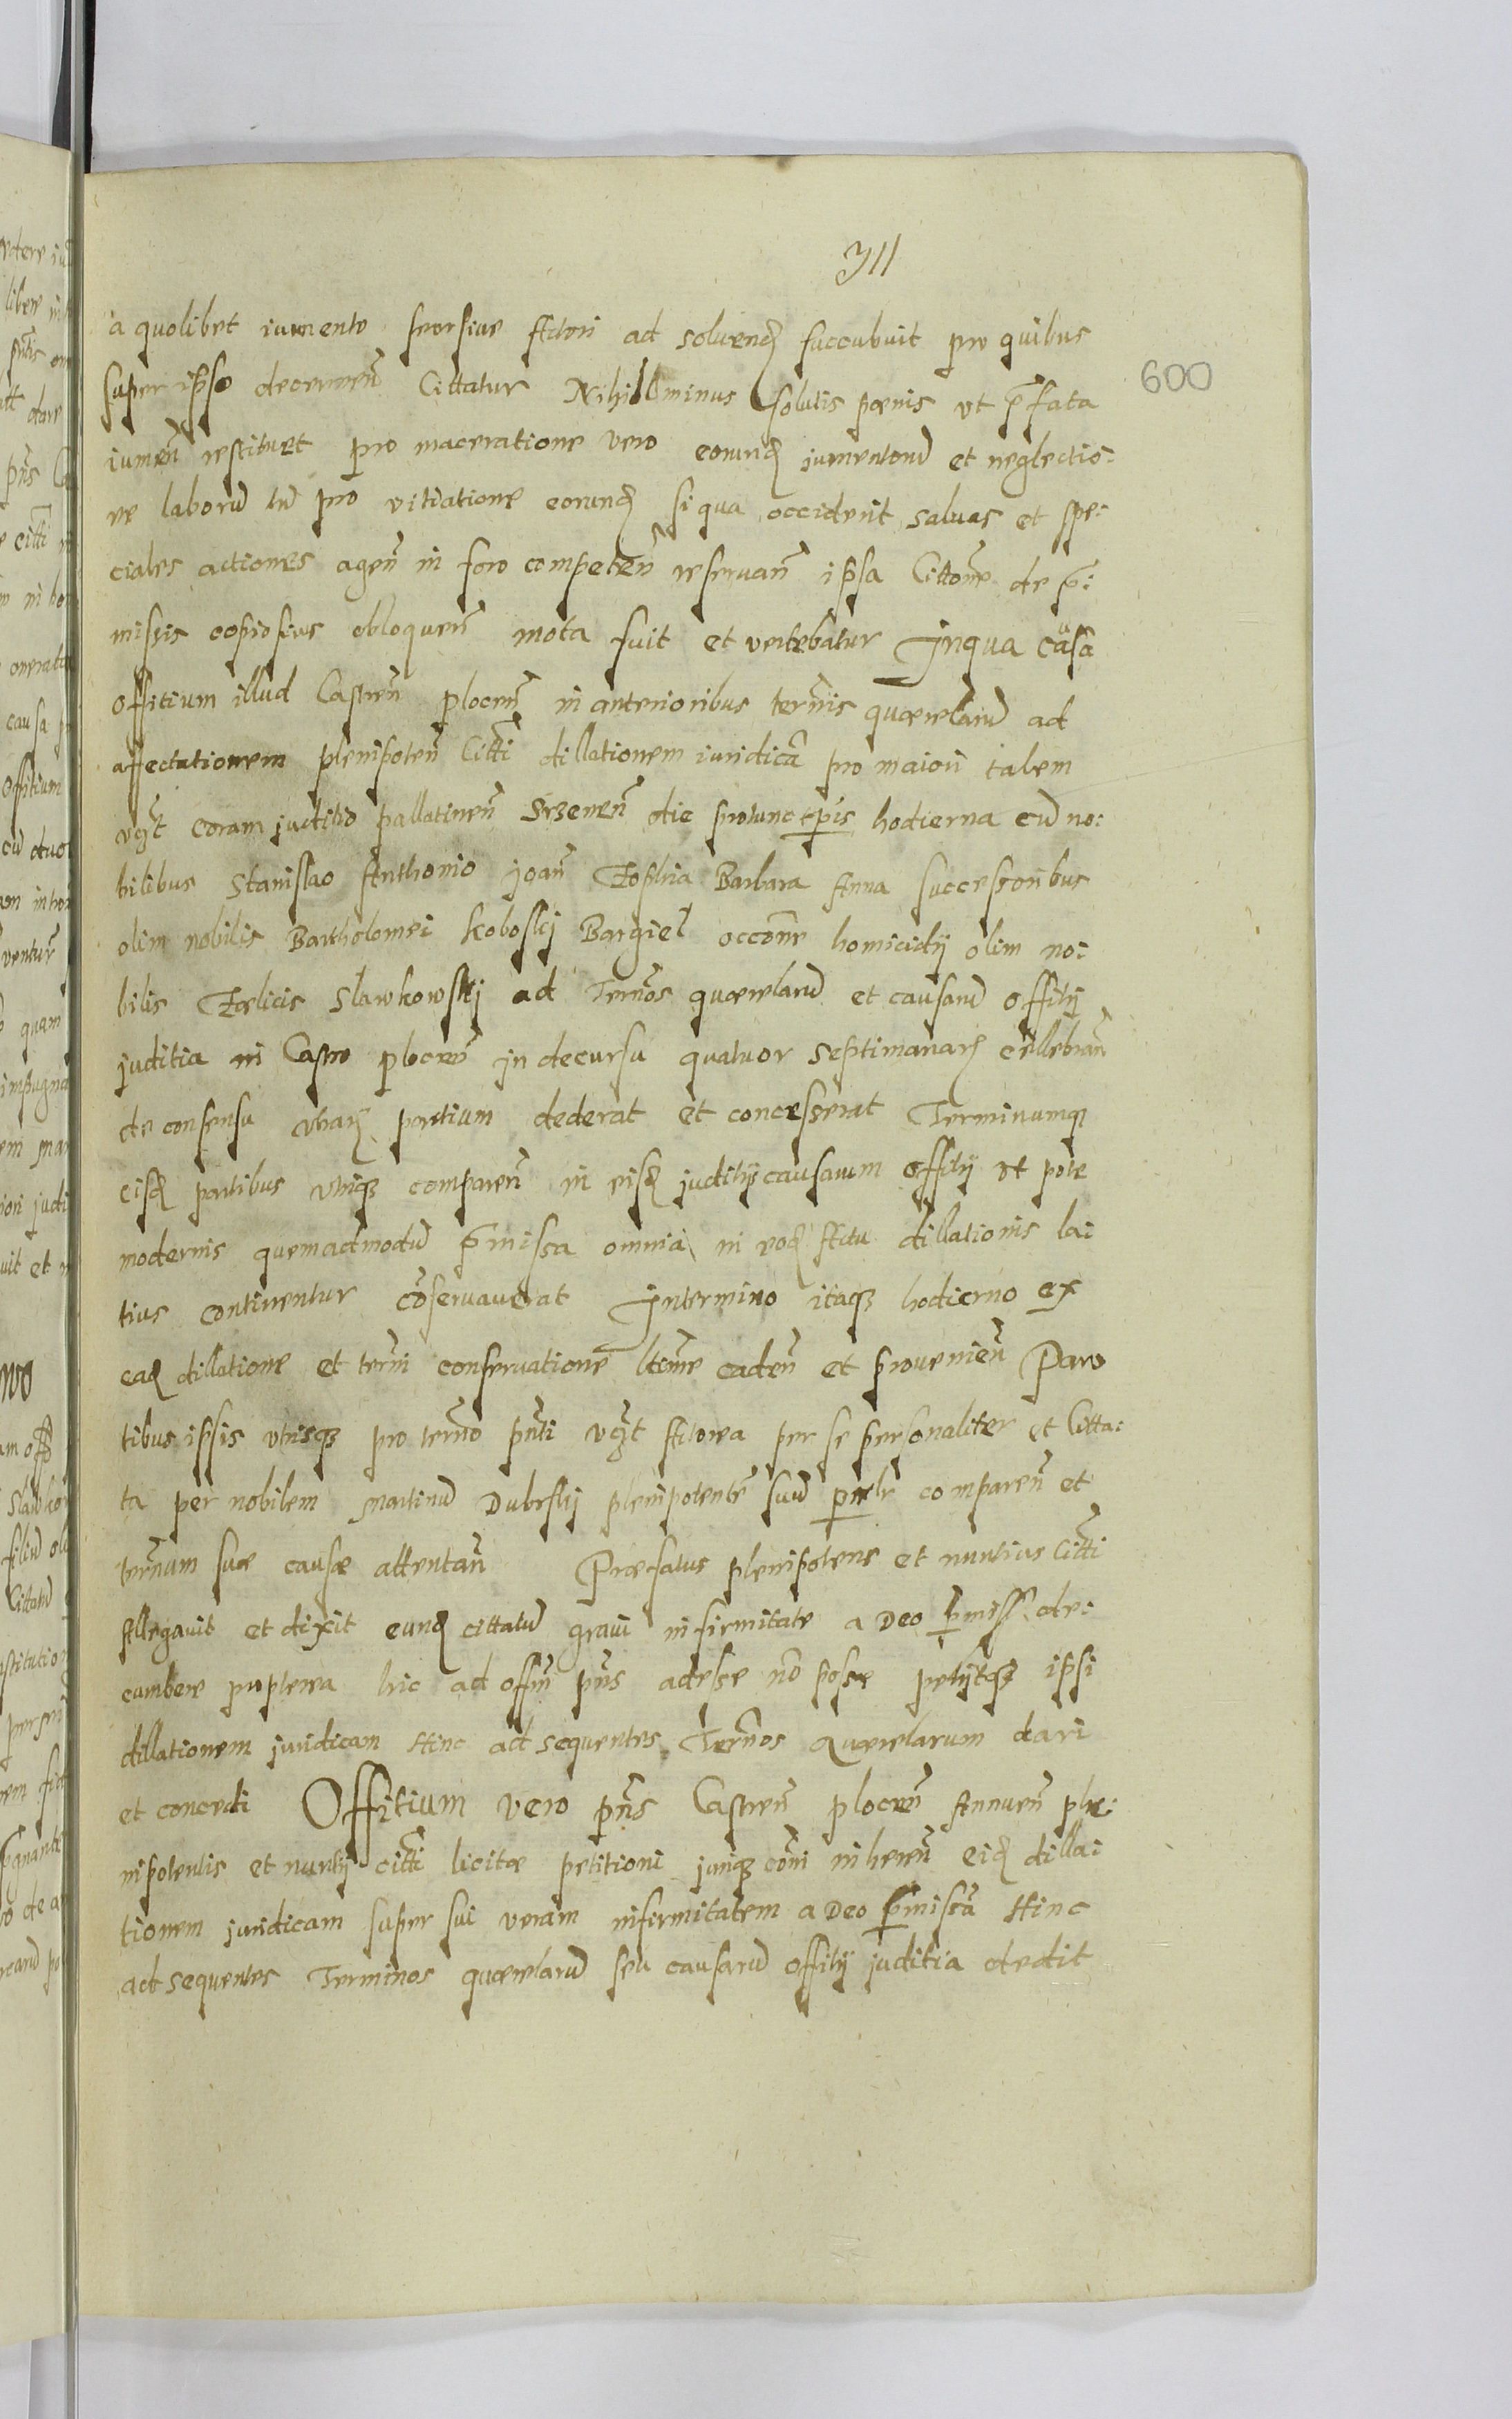 711
600
a quolibet iumento seorsive Actori ad solvend succubuit pro quibus
super ipso decernen Cittatur Nihilominus solutis pœnis ut p̄fata
iumen̄ restituet pro maceratione vero eorund jumentorū et neglectio:
ne laborū tū pro vitiatione eorund si qua occiderit salvas et spe:
ciales actiones agen̄ in foro competen̄ reservan̄ ipsa Cittone de p̄:
missis copiosius obloquen̄ mota fuit et vertebatur Inqua causa
Offitium illud Castren̄ plocen̄ in anterioribus termīs quærelarū ad
affectationem plenipoten̄ Citti dillationem iuridicā pro maiori talem
vzt coram juditio pallatinen̄ die protunc tp̄is hodierna cū no:
bilibus Stanislao Anthonio Joan̄ Zophia Barbara Anna successoribus
olim nobilis Bartholomei Koboskj Bargiel occone homicidij olim no:
bilis Fœlicis Slawkowskj ad Termos quærelarū et causarū offitij
juditia in Castro plocen̄ in decursu quatuor septimanar cellebran̄
de consensu utrar partium dederat et concesserat Terminumq
eisd partibus utrisq comparen̄ in eisd juditijs causarum offitij ut pote
modernis quemadmodū p̄missa omnia in eod Actu dillationis la:
tius continentur cōservaverat Intermino itaq hodierno ex
ead dillatione et termi conservatione ltime caden̄ et provenien̄ Par
tibus ipsis utrisq pro termo pn̄ti vzt Actorea per se personaliter et Citta:
ta per nobilem Martinū Dubrskj plenipotentē suū comparen̄ et
termum suæ causæ attentan̄ Præfatus plenipotens et nuntius Citti
Allegavit et dixit eund cittatū gravi infirmitate a Deo p̄miss de:
cumbere propterea hic ad offm pn̄s adesse nō posse petijtq ipsi
dillationem juridicam Hinc ad sequentes Termos quærelarum dari
et concedi Offitium vero pn̄s Castren̄ plocen̄ Annuen̄ ple:
nipotentis et nuntij citti licitæ petitioni juriq cōni inheren̄ eid dilla:
tionem juridicam super sui veram infirmitatem a Deo p̄missā Hinc
ad sequentes Terminos quærelarū seu causarū offitij juditia dedit